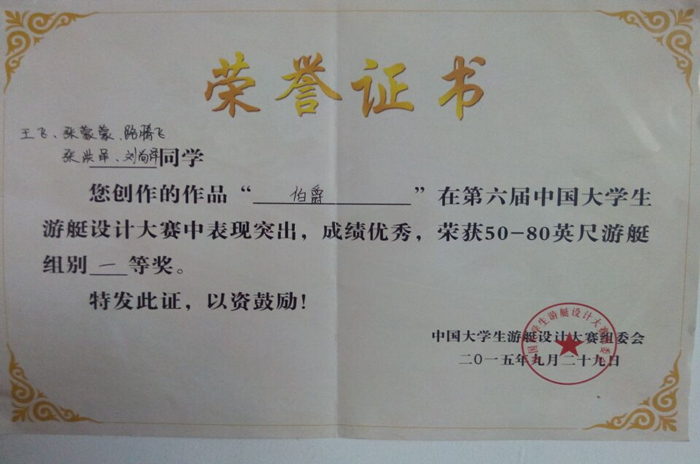 荣誉证书
王飞、张蒙蒙、陈腾飞
张洪、刘
同学
您创作的作品“伯爵”在第六届中国大学生
游艇设计大赛中表现突出，成绩优秀，荣获50-80英尺游艇
组别一等奖。
特发此证，以资鼓励！
中国大学生游艇设计大赛组委会
二〇一五年九月二十九日